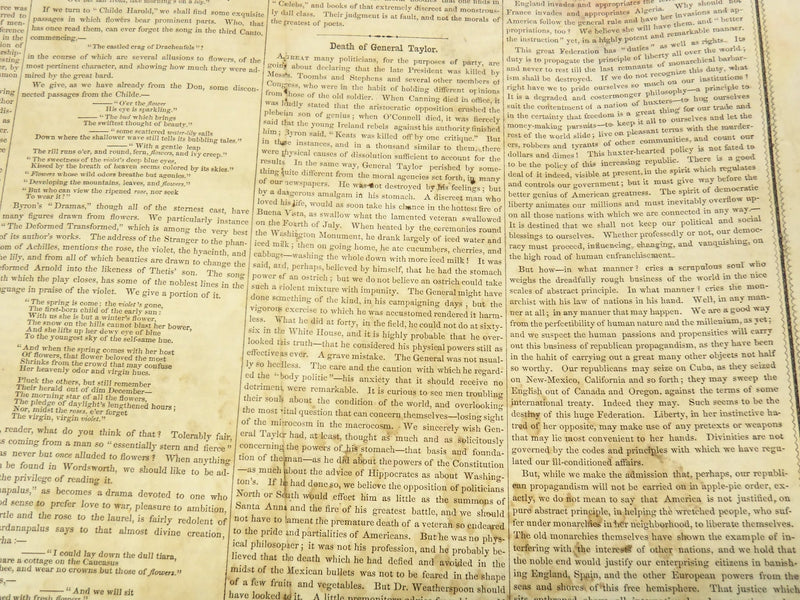 ree was
red to
of mon-
ference
in the
ion of
rship-
ing
or
dis-
as
If we turn to "Childe Harold," we shall find some exquisite
passages in which flowers bear prominent parts. Who, that
has once read them, can ever forget the song in the third Canto,
commencing,—
"The castled crag of Drachenfels"?
in the course of which are several allusions to flowers, of the
most pertinent character, and showing how much they were ad-
mired by the great bard.
We give, as we have already from the Don, some discon-
nected passages from the Childe.—
——— "O'er the flower
His eye is sparkling."
——— "The bud which brings
The swiftest thought of beauty."
——— "some scattered water-lily sails
Down where the shallower wave still tells its bubbling tales."
——— "With a gentle leap
The rill runs o'er, and round, fern, flowers, and ivy creep."
"The sweetness of the violet's deep blue eyes,
Kissed by the breath of heaven seems colored by its skies."
"Flowers whose wild odors breathe but agonies."
"Developing the mountains, leaves, and flowers."
"But who can view the ripened rose, nor seek
To wear it?"
Byron's "Dramas," though all of the sternest cast, have
many figures drawn from flowers. We particularly instance
"The Deformed Transformed," which is among the very best
of its author's works. The address of the Stranger to the phan-
tom of Achilles, mentions the rose, the violet, the hyacinth, and
the lily, and from all of which beauties are drawn to change the
deformed Arnold into the likeness of Thetis' son. The song
with which the play closes, has some of the noblest lines in the
language in praise of the violet. We give a portion of it.
"The spring is come: the violet's gone,
The first-born child of the early sun:
With us she is but a winter's flower,
The snow on the hills cannot blast her bower,
And she lifts up her dewy eye of blue
To the youngest sky of the self-same hue.
"And when the spring comes with her host
Of flowers, that flower beloved the most
Shrinks from the crowd that may confuse
Her heavenly odor and virgin hues.
Pluck the others, but still remember
Their herald out of dim December—
The morning star of all the flowers,
The pledge of daylight's lengthened hours;
Nor, midst the roses, e'er forget
The virgin, virgin violet."
, reader, what do you think of that? Tolerably fair,
s coming from a man so "essentially stern and fierce"
as never but once alluded to flowers? When anything
n be found in Wordsworth, we should like to be ad-
the privilege of reading it.
napalus," as becomes a drama devoted to one who
d sense to prefer love to war, pleasure to ambition,
rtle and the rose to the laurel, is fairly redolent of
rdanapalus says to that almost divine creation,
rha:—
——— "I could lay down the dull tiara,
hare a cottage on the Caucasus
hee, and wear no crowns but those of flowers."
——— "And we will sit
ned with fresh flowers"
"Celebs," and books of that extremely discreet and monstrous-
ly dull class. Their judgment is at fault, and not the morals of
the greatest of poets.
Death of General Taylor.
A great many politicians, for the purposes of party, are
going about declaring that the late President was killed by
Messrs. Toombs and Stephens and several other members of
Congress, who were in the habit of holding different opinions
from those of the old soldier. When Canning died in office, it
was loudly stated that the aristocratic opposition crushed the
plebeian son of genius; when O'Connell died, it was fiercely
said that the young Ireland rebels against his authority finished
him; Byron said, "Keats was killed off by one critique." But
in these instances, and in a thousand similar to them, there
were physical causes of dissolution sufficient to account for the
results. In the same way, General Taylor perished by some-
thing quite different from the moral agencies set forth in many
of our newspapers. He was not destroyed by his feelings; but
by a dangerous amalgam in his stomach. A discreet man who
loved his life, would as soon take his chance in the hottest fire of
Buena Vista, as swallow what the lamented veteran swallowed
on the Fourth of July. When heated by the ceremonies round
the Washington Monument, he drank largely of iced water and
iced milk; then on going home, he ate cucumbers, cherries, and
cabbage—washing the whole down with more iced milk! It was
said, and, perhaps, believed by himself, that he had the stomach
power of an ostrich; but we do not believe an ostrich could take
such a violent mixture with impunity. The General might have
done something of the kind, in his campaigning days, but the
vigorous exercise to which he was accustomed rendered it harm-
less. What he did at forty, in the field, he could not do at sixty-
six in the White House, and it is highly probable that he over-
looked this truth—that he considered his physical powers still as
effective as ever. A grave mistake. The General was not usual-
ly so heedless. The care and the caution with which he regard-
ed the "body politic"—his anxiety that it should receive no
detriment, were remarkable. It is curious to see men troubling
their souls about the condition of the world, and overlooking
the most vital question that can concern themselves—losing sight
of the microcosm in the macrocosm. We sincerely wish Gen-
eral Taylor had, at least, thought as much and as solicitously
concerning the powers of his stomach—that basis and founda-
tion of the man—as he did about the powers of the Constitution
—as much about the advice of Hippocrates as about Washing-
ton's. If he had done so, we believe the opposition of politicians
North or South would effect him as little as the summons of
Santa Anna and the fire of his greatest battle, and we should
not have to lament the premature death of a veteran so endeared
to the pride and partialities of Americans. But he was no phys-
ical philosopher; it was not his profession, and he probably be-
lieved that the death which he had defied and avoided in the
midst of the Mexican bullets was not to be feared in the shape
of a few fruits and vegetables. But Dr. Weatherspoon should
have looked to it.
England invades and appropriates the
France invades and appropriates Algeria. Why should not
America follow the general rule and have her invasions and ap-
propriations, too? We believe she will have them, and "better
the instruction" yet, in a highly potent and remarkable manner.
This great Federation has "duties" as well as rights. Its
duty is to propagate the principle of liberty all over the world;
and never to rest till the last remnants of monarchical barbar-
ism shall be destroyed. If we do not recognize this duty, what
right have we to pride ourselves so much on our institutions?
It is a degraded and costermonger philosophy—a principle to
suit the contentment of a nation of huxters—to hug ourselves
in the certainty that freedom is a great thing for our trade and
money-making pursuits—to keep it all to ourselves and let the
rest of the world slide; live on pleasant terms with the murder-
ers, robbers and tyrants of other communities, and count our
dollars and dimes! This huxter-hearted policy is not fated to
be the policy of this increasing republic. There is a good
deal of it indeed, visible at present, in the spirit which regulates
and controls our government; but it must give way before the
better genius of American greatness. The spirit of democratic
liberty animates our millions and must inevitably overflow up-
on all those nations with which we are connected in any way—
It is destined that we shall not keep our political and social
blessings to ourselves. Whether professedly or not, our democ-
racy must proceed, influencing, changing, and vanquishing, on
the high road of human enfranchisement.
But how—in what manner? cries a scrupulous soul who
weighs the dreadfully rough business of the world in the nice
scales of abstract principle. In what manner? cries the mon-
archist with his law of nations in his hand. Well, in any man-
ner at all; in any manner that may happen. We are a good way
from the perfectibility of human nature and the millenium, as yet;
and we suspect the human passions and propensities will carry
out this business of republican propagandism, as they have been
in the habit of carrying out a great many other objects not half
so worthy. Our republicans may seize on Cuba, as they seized
on New-Mexico, California and so forth; they may sweep the
English out of Canada and Oregon, against the terms of some
international treaty. Indeed they may. Such seems to be the
destiny of this huge Federation. Liberty, in her instinctive ha-
tred of her opposite, may make use of any pretexts or weapons
that may lie most convenient to her hands. Divinities are not
governed by the codes and principles with which we have regu-
lated our ill-conditioned affairs.
But, while we make the admission that, perhaps, our republi-
can propagandism will not be carried on in apple-pie order, ex-
actly, we do not mean to say that America is not justified, on
pure abstract principle, in helping the wretched people, who suf-
fer under monarchies in her neighborhood, to liberate themselves.
The old monarchies themselves have shown the example of in-
terfering with the interests of other nations, and we hold that
the noble end would justify our enterprising citizens in banish-
ing England, Spain, and the other European powers from the
seas and shores of this free hemisphere. That justice which